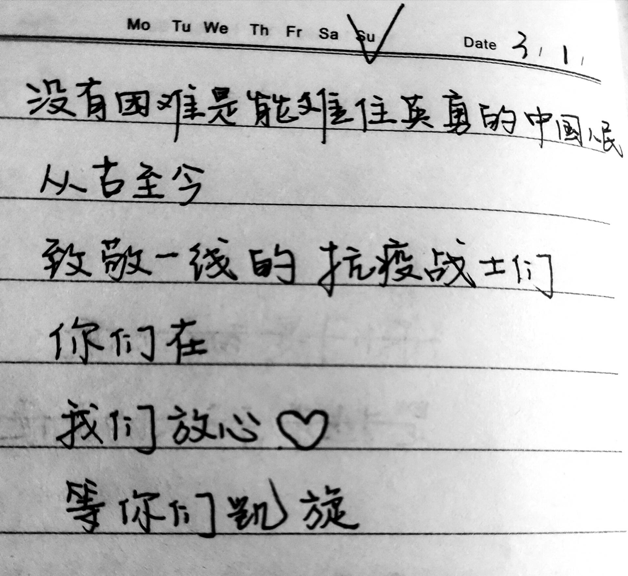 Mo Tu We Th Fr Sa Su Date 3 / 1 /
没有困难是能难住英勇的中国人民
从古至今
致敬一线的抗疫战士们
你们在
我们放心♡
等你们凯旋